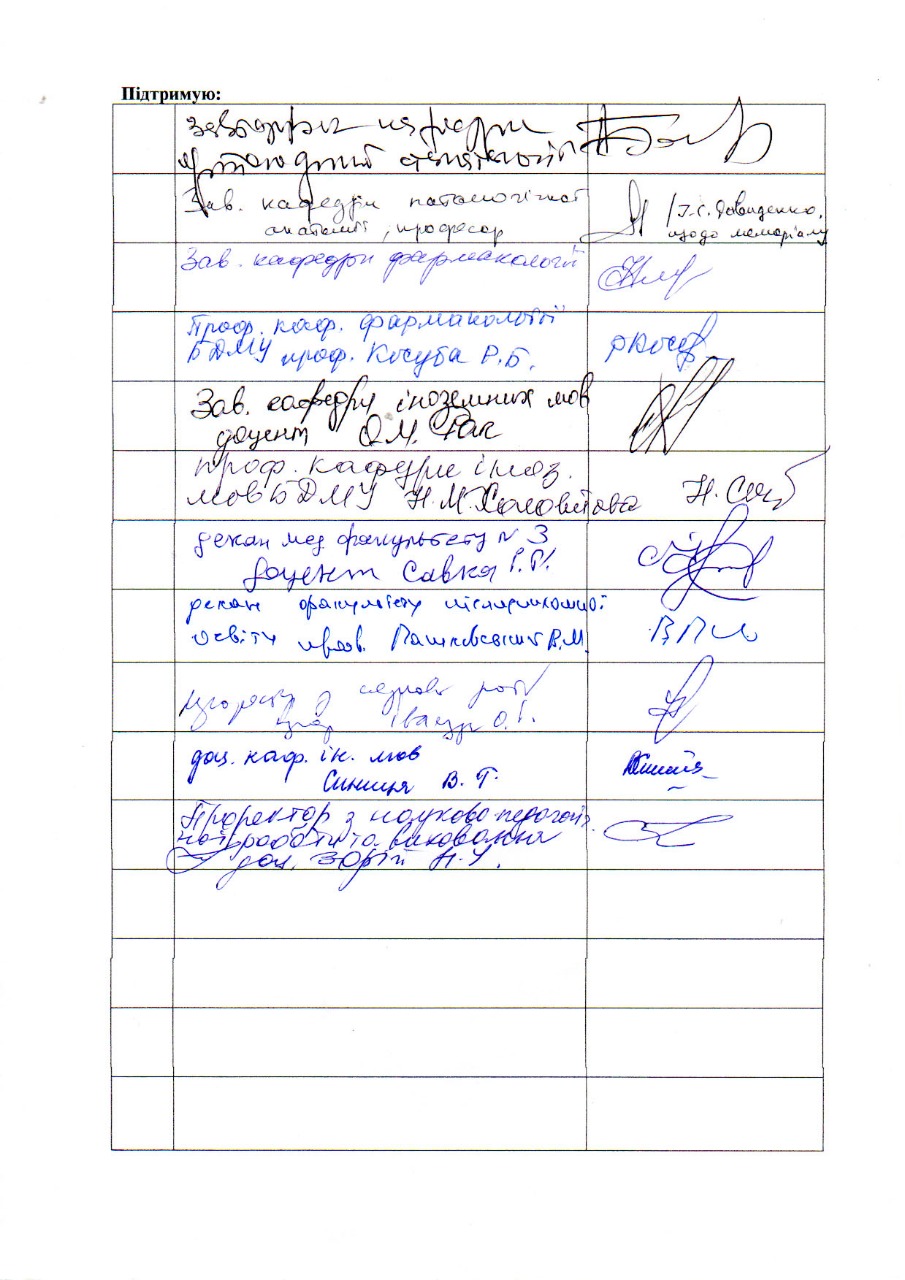 Підтримую:
Зав. кафедри патологічної
анатомії, професор
/І.С. Давиденко,
щодо меморіалу
Зав. кафедри фармакології
Проф. каф. фармакології
БДМУ проф. Косуба Р.Б.
РКосуб
Зав. кафедри іноземних мов
доцент О.М. Рак
проф. кафедри іноз.
мов БДМУ Н.М.
декан мед. факультету №3
доцент Савка
декан факультету післядипломної
освіти проф. Пашковський В.М.
О.І.
доц. каф. ін. мов
Синиця В. Г.
Проректор з науково педагогіч.
ної роботи та виховання
доц. Зорій Н.І.